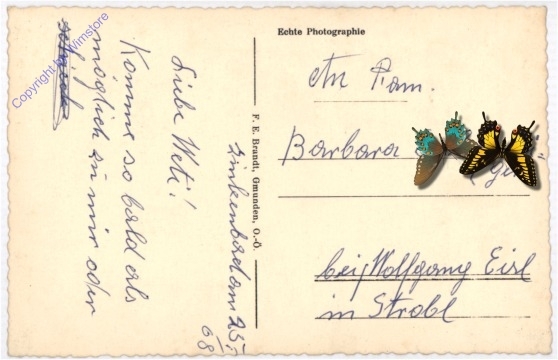 Echte Photographie
An Fam.
Barbara
bei Wolfgang Eisl
in Strobl
F. E. Brandt, Gmunden, O.-Ö.
Zinkenbach am 25.
68
Liebe Meti!
Komme so bald als
möglich zu mir oder
Copyright by Wimstore